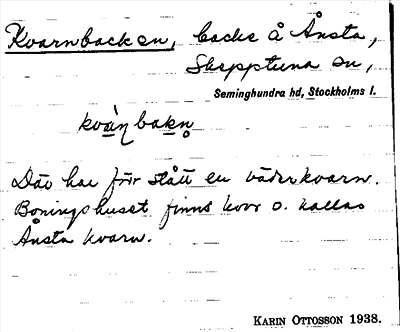 Kvarnbacken, backe å Ånsta,
Skepptuna sn,
Seminghundra hd, Stockholms l.
kvàṇbakn̥
Där har förr stått en väderkvarn.
Boningshuset finns kvar o. kallas
Ånsta kvarn.
KARIN OTTOSSON 1938.